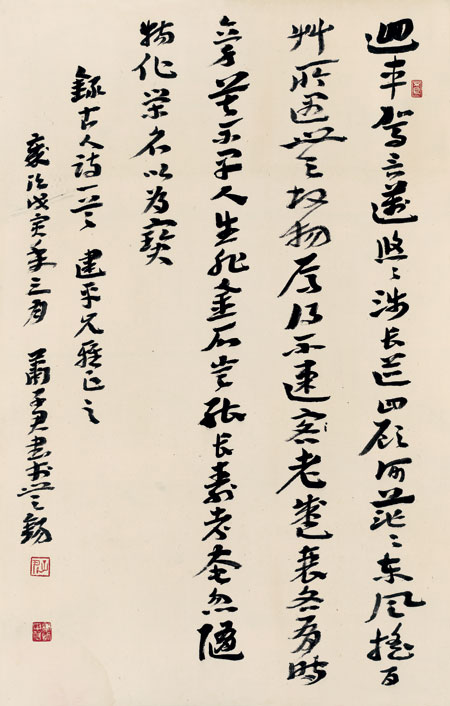 迴車駕言邁悠〻涉長道四顧何茫〻東風摇百
艸所遇無故物焉得不速客老盛衰各有時
立身苦不早人生非金石豈能長壽考奄忽隨
物化榮名以為寶
録古人詩一首 建平兄雅正之
歲次戊寅年三月 蕭子君書於無錫